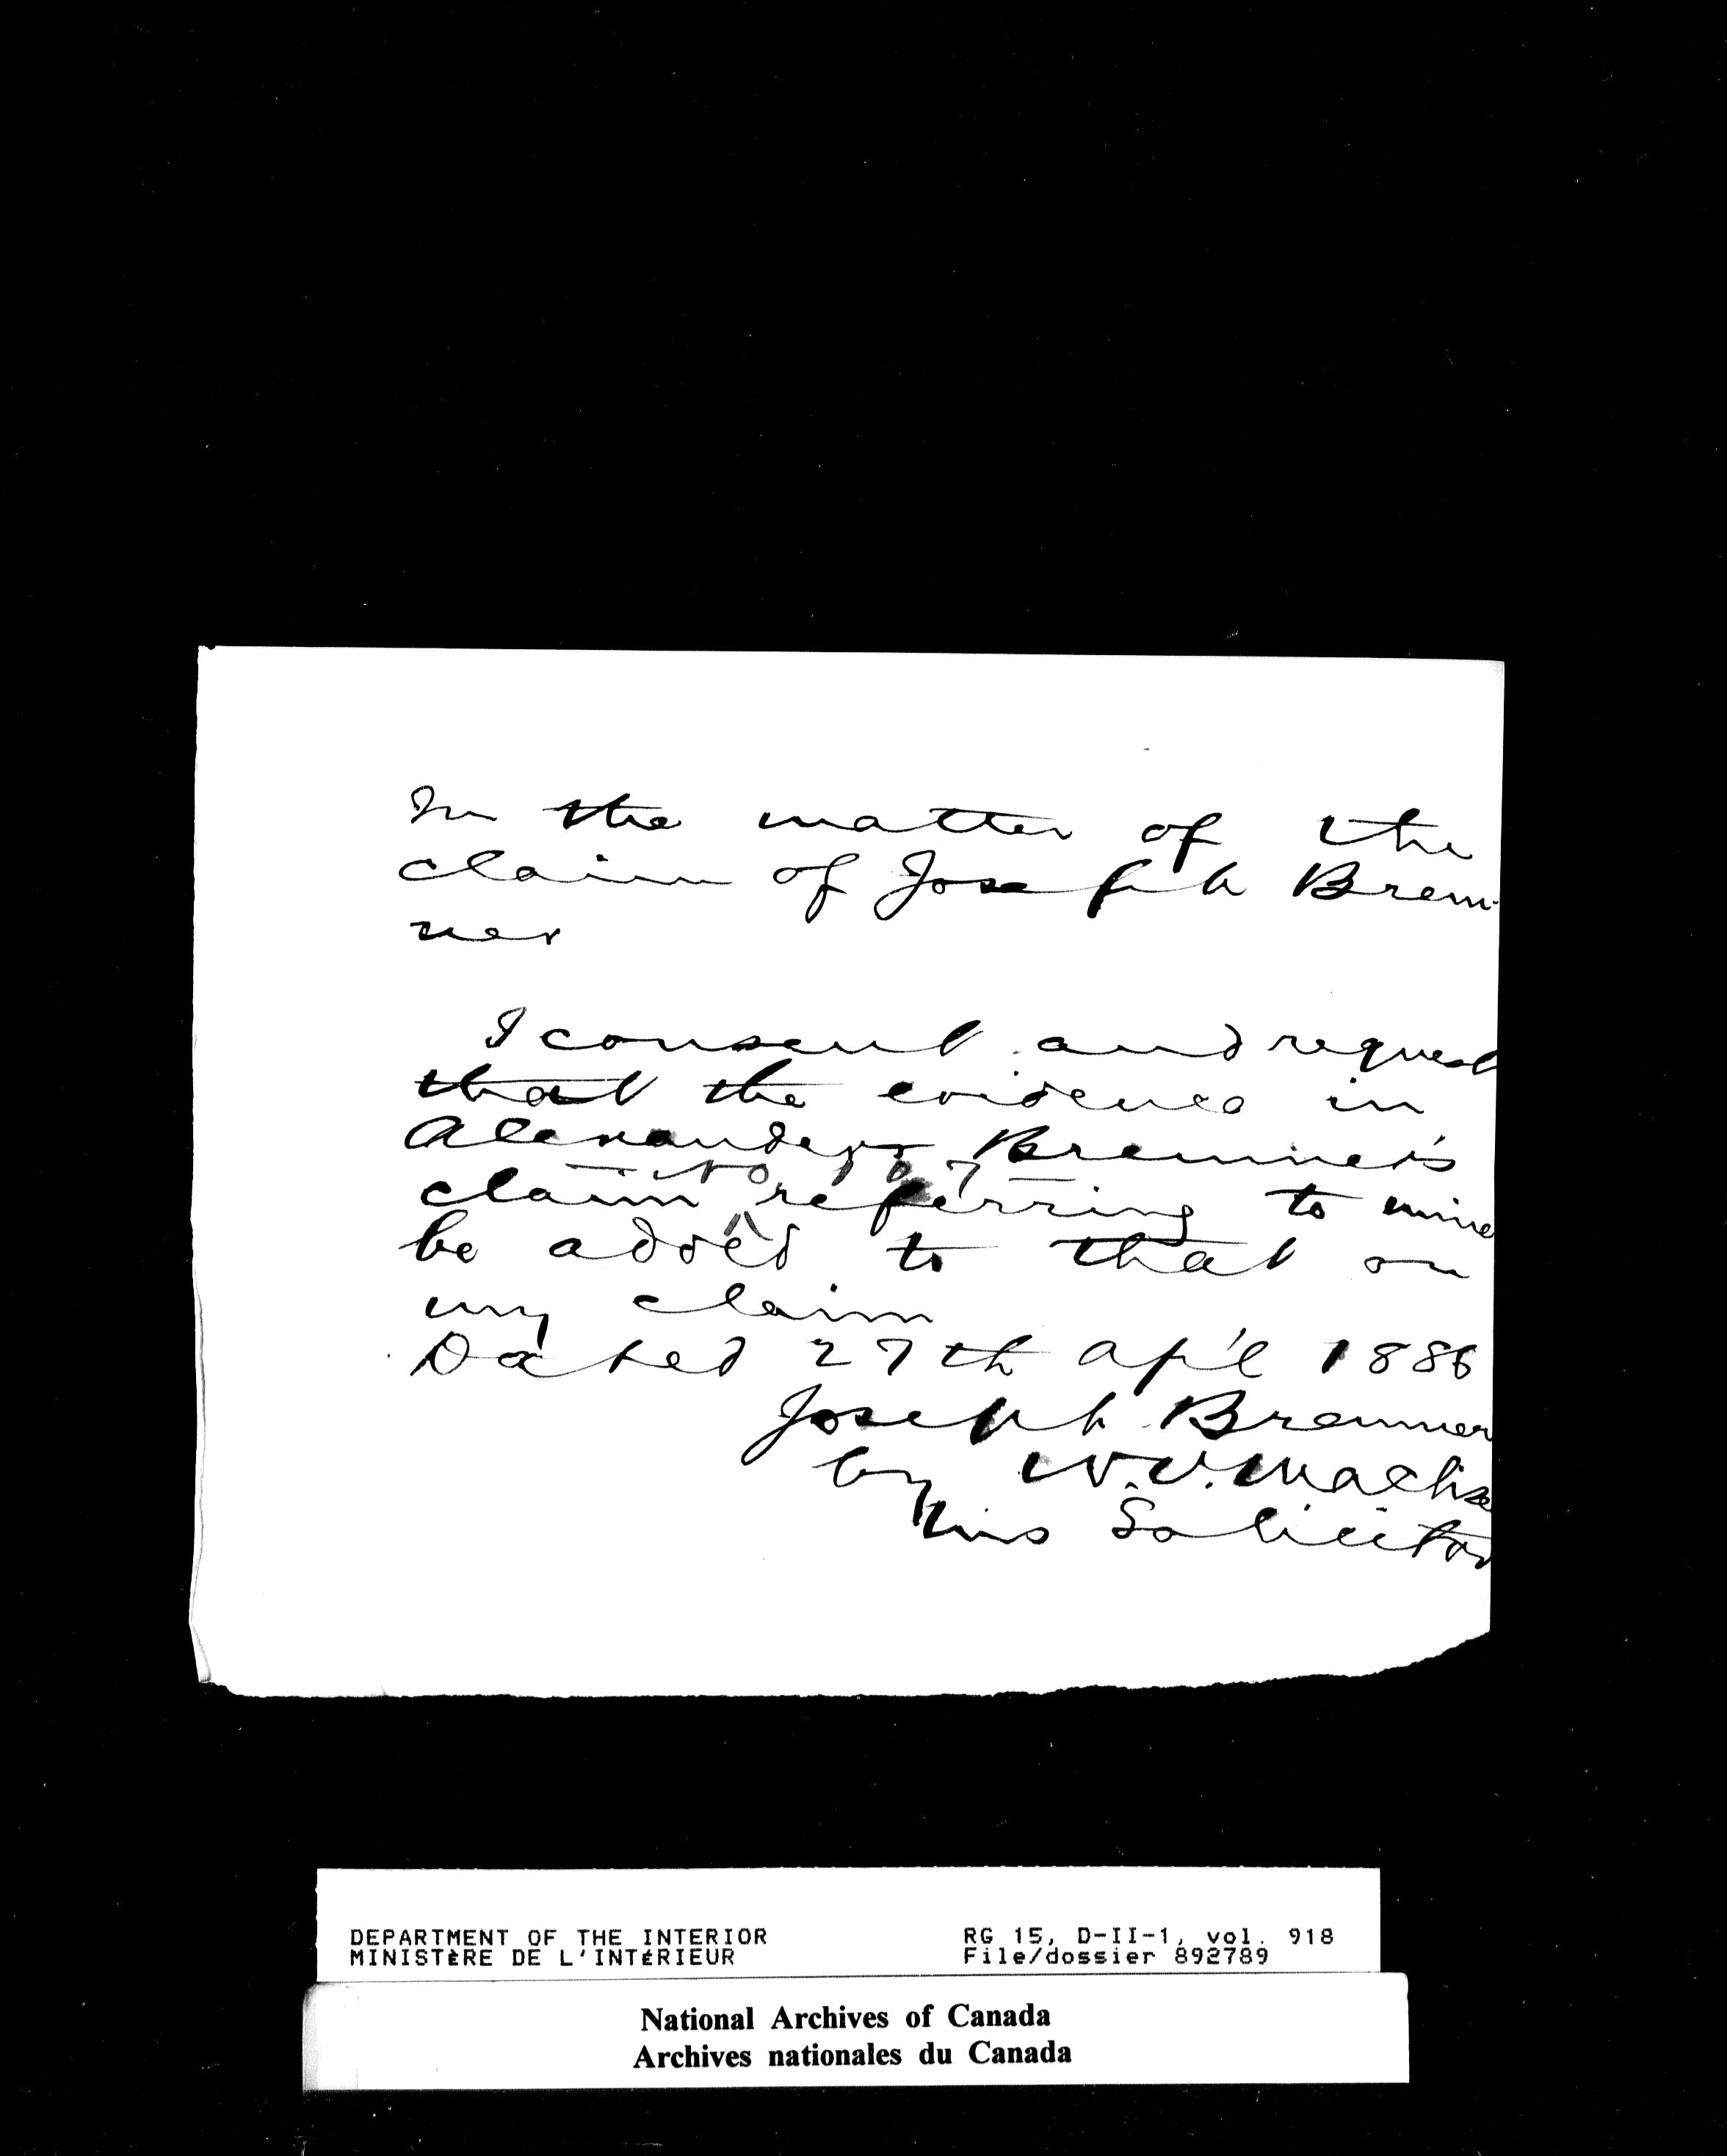 In the matter of the
claim of Joseph Brem-
ner
I consent and request
that the evidence in
Alexander Bremner's
No 107
claim referring to mine
be added to that on
my claim
Dated 27th Ap'l 1886
Joseph Bremner
by W.V. Maclise
his Solicitor
DEPARTMENT OF THE INTERIOR RG 15, D-II-1, vol. 918
MINISTÈRE DE L'INTÉRIEUR File/dossier 892789
National Archives of Canada
Archives nationales du Canada